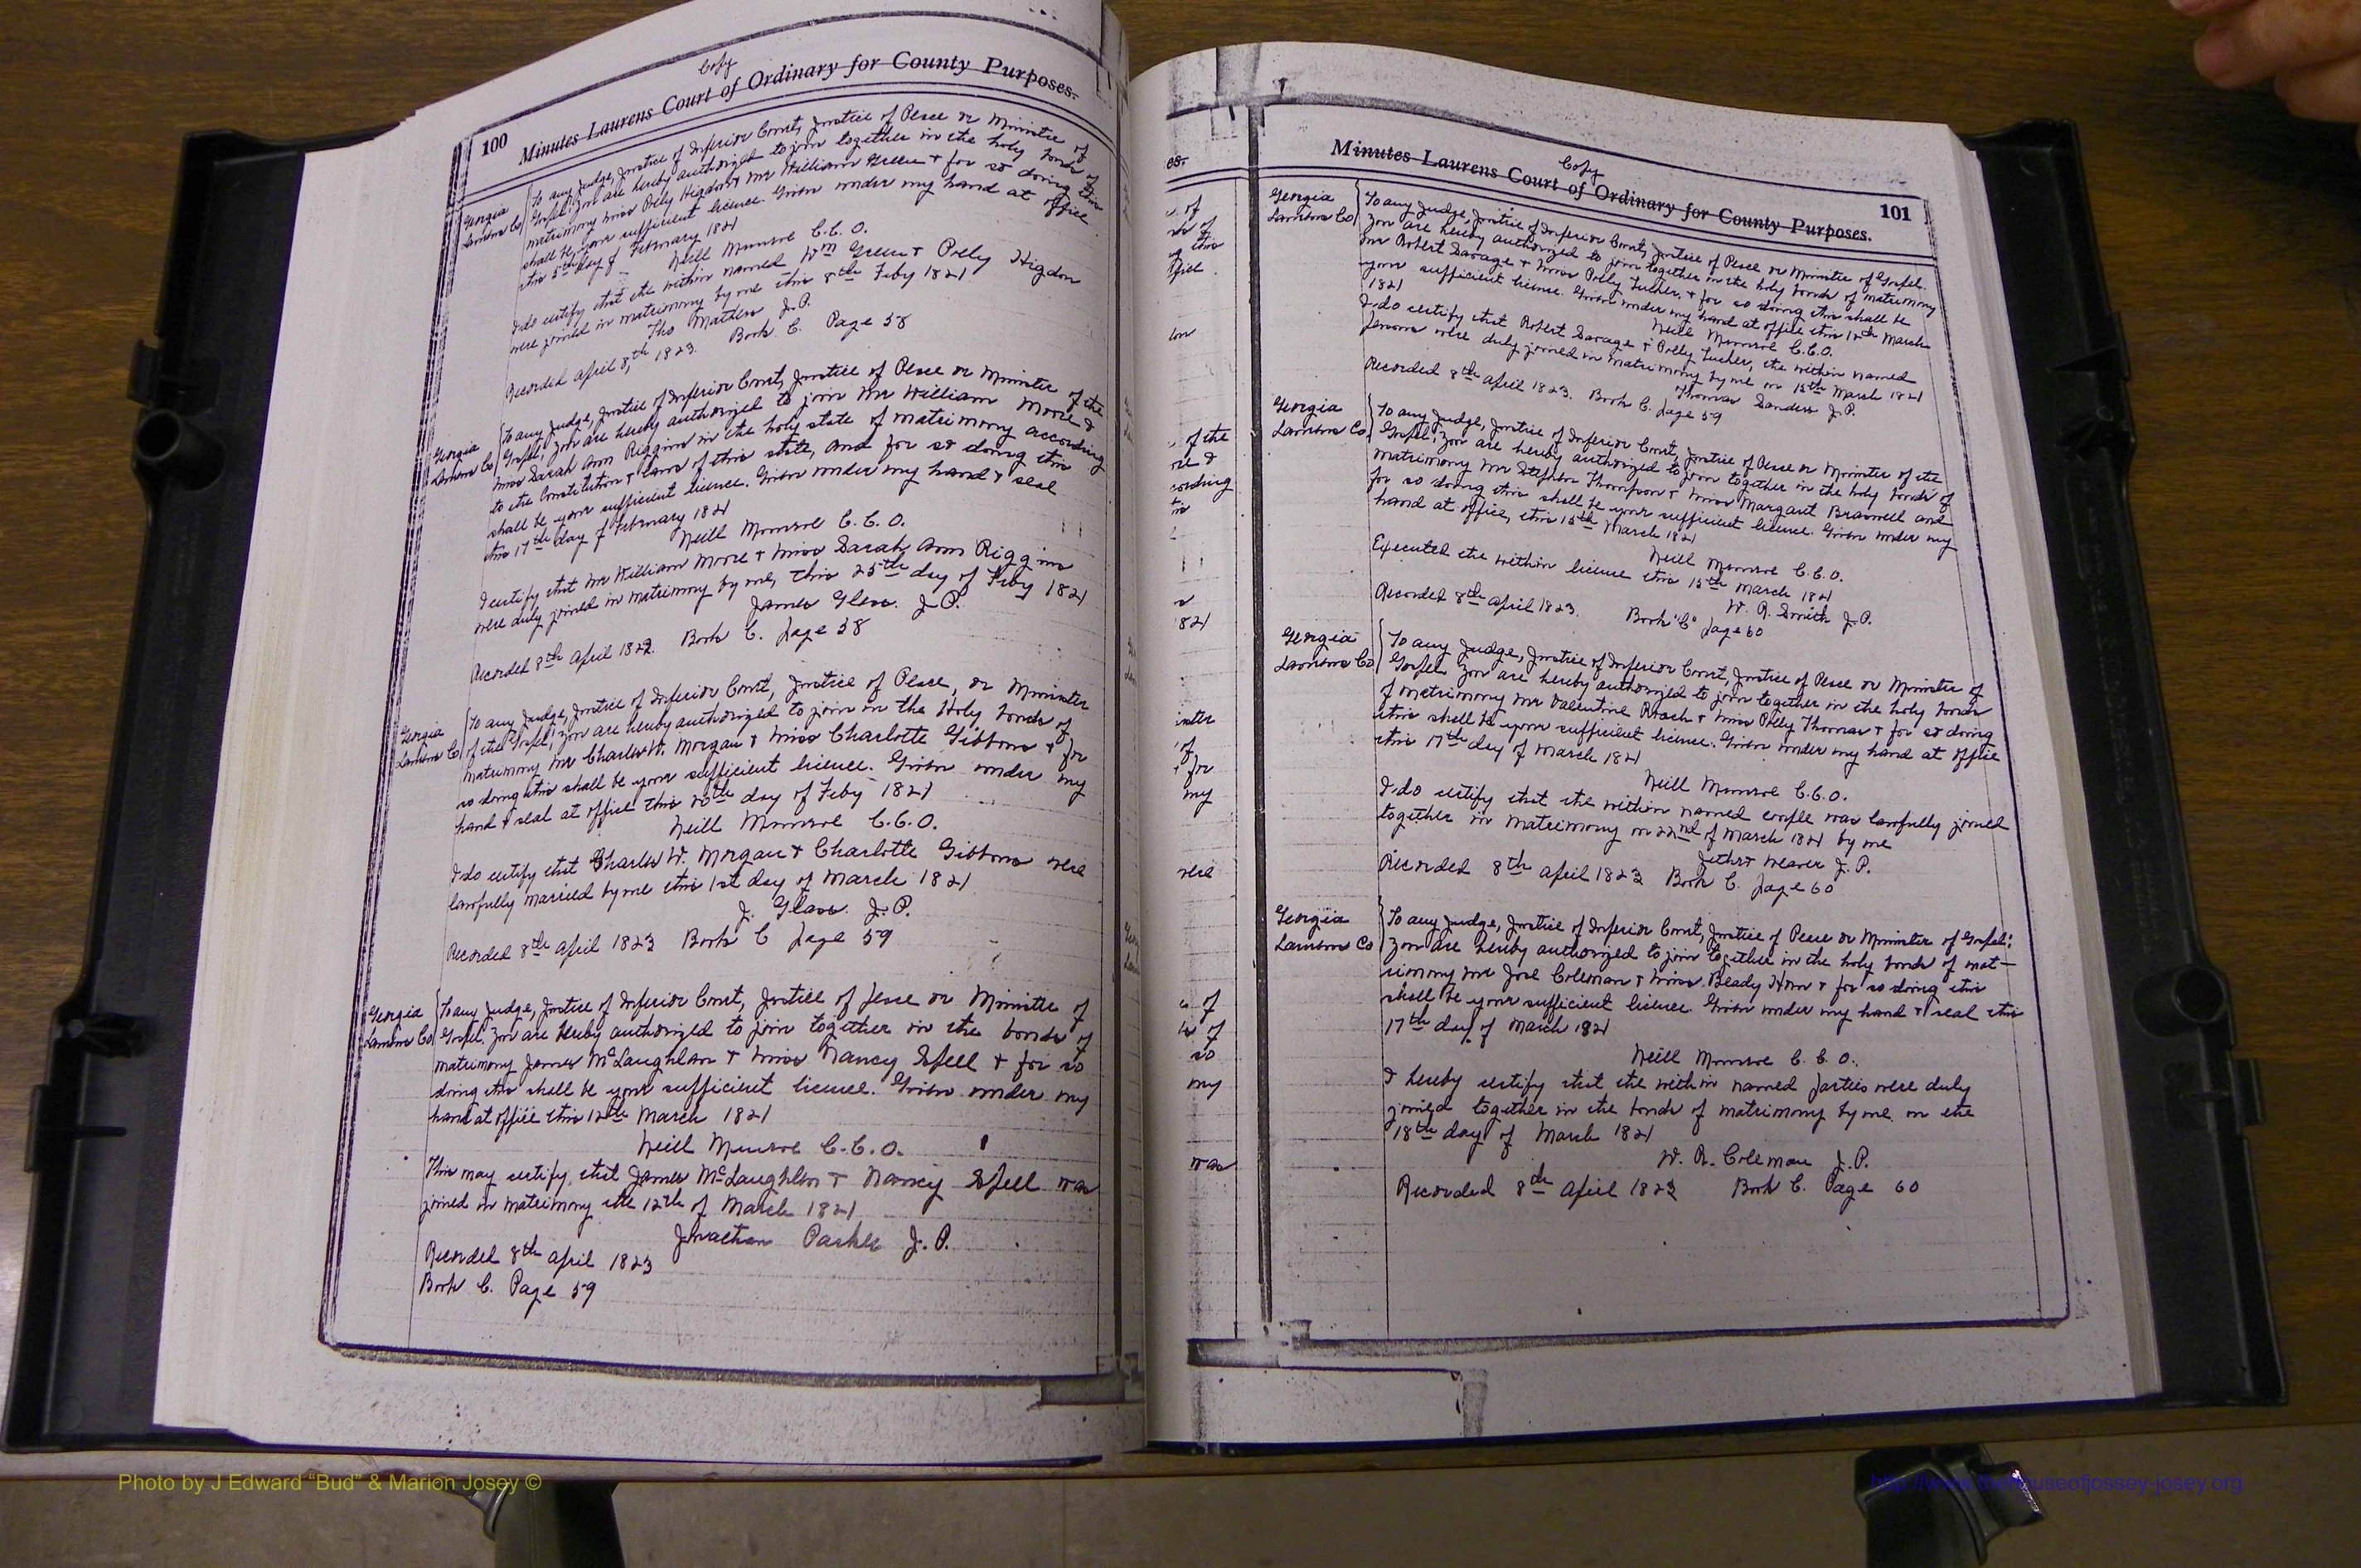 Copy
100 Minutes Laurens Court of Ordinary for County Purposes.
Georgia
Laurens Co
To any Judge, Justice of Inferior Court, Justice of Peace or Minister of
Gospel: You are hereby authorized to join together in the holy bonds of
matrimony Miss Polly Higdon & Mr William Green & for so doing this
shall be your sufficient licence. Given under my hand at office
this 5th day of February 1821
Neill Munroe C.C.O.
I do certify that the within named Wm Green & Polly Higdon
were joined in matrimony by me this 8th Feby 1821
Tho Mathers J.P.
Recorded April 8th, 1823. Book C. Page 58
Georgia
Laurens Co
To any Judge, Justice of Inferior Court, Justice of Peace or Minister of the
Gospel; You are hereby authorized to join Mr William Moore &
Miss Sarah Ann Riggins in the holy state of matrimony according
to the Constitution & laws of this state, and for so doing this
shall be your sufficient licence. Given under my hand & seal
this 17th day of February 1821
Neill Munroe C.C.O.
I certify that Mr William Moore & Miss Sarah Ann Riggins
were duly joined in matrimony by me, this 25th day of Feby 1821
James Glass. J.P.
Recorded 8th April 1823. Book C. Page 58
Georgia
Laurens Co
To any Judge, Justice of Inferior Court, Justice of Peace, or Minister
of the Gospel; You are hereby authorized to join in the Holy bonds of
matrimony Mr Charles W. Morgan & Miss Charlotte Gibbons & for
so doing this shall be your sufficient licence. Given under my
hand & seal at office this 20th day of Feby 1821
Neill Munroe C.C.O.
I do certify that Charles W. Morgan & Charlotte Gibbons were
lawfully married by me this 1st day of March 1821
J. Glass. J.P.
Recorded 8th April 1823 Book C Page 59
Georgia
Laurens Co
To any Judge, Justice of Inferior Court, Justice of Peace or Minister of
Gospel. You are hereby authorized to join together in the bonds of
matrimony James McLaughlan & Miss Nancy Spell & for so
doing this shall be your sufficient licence. Given under my
hand at office this 12th March 1821
Neill Munroe C.C.O.
This may certify, that James McLaughlin & Nancy Spell was
joined in matrimony the 12th of March 1821
Jonathan Parker J.P.
Recorded 8th April 1823
Book C. Page 59
es.
of
of
this
office
of the
ore &
cording
this
1821
nister
of
& for
my
were
of
of
so
my
was
Copy
Minutes Laurens Court of Ordinary for County Purposes. 101
Georgia
Laurens Co
To any Judge, Justice of Inferior Court, Justice of Peace or Minister of Gospel.
You are hereby authorized to join together in the holy bonds of matrimony
Mr Robert Savage & Miss Polly Tucker, & for so doing this shall be
your sufficient licence. Given under my hand at office this 12th March
1821
Neill Munroe C.C.O.
I do certify that Robert Savage & Polly Tucker, the within named
persons were duly joined in matrimony by me on 15th March 1821
Thomas Sanders J.P.
Recorded 8th April 1823. Book C. Page 59
Georgia
Laurens Co.
To any Judge, Justice of Inferior Court, Justice of Peace or Minister of the
Gospel; You are hereby authorized to join together in the holy bonds of
matrimony Mr Stephen Thompson & Miss Margaret Braswell and
for so doing this shall be your sufficient licence. Given under my
hand at office, this 15th March 1821
Neill Munroe C.C.O.
Executed the within licence this 15th March 1821
W. R. Smith J.P.
Recorded 8th April 1823. Book "C" Page 60
Georgia
Laurens Co
To any Judge, Justice of Inferior Court, Justice of Peace or Minister of
Gospel. You are hereby authorized to join together in the holy bonds
of matrimony Mr Valentine Roach & Miss Polly Thomas & for so doing
this shall be your sufficient licence. Given under my hand at office
this 17th day of March 1821
Neill Munroe C.C.O.
I do certify that the within named couple was lawfully joined
together in matrimony on 22nd of March 1821 by me
Jethro Weaver J.P.
Recorded 8th April 1823 Book C. Page 60
Georgia
Laurens Co
To any Judge, Justice of Inferior Court, Justice of Peace or Minister of Gospel;
You are hereby authorized to join together in the holy bonds of mat-
rimony Mr Jose Coleman & Miss Beady Horn & for so doing this
shall be your sufficient licence. Given under my hand & seal this
17th day of March 1821
Neill Munroe C.C.O.
I hereby certify that the within named parties were duly
joined together in the bonds of matrimony by me on the
18th day of March 1821
W. R. Coleman J.P.
Recorded 8th April 1823 Book C. Page 60
Photo by J Edward "Bud" & Marion Josey ©
http://www.thehouseofjossey-josey.org